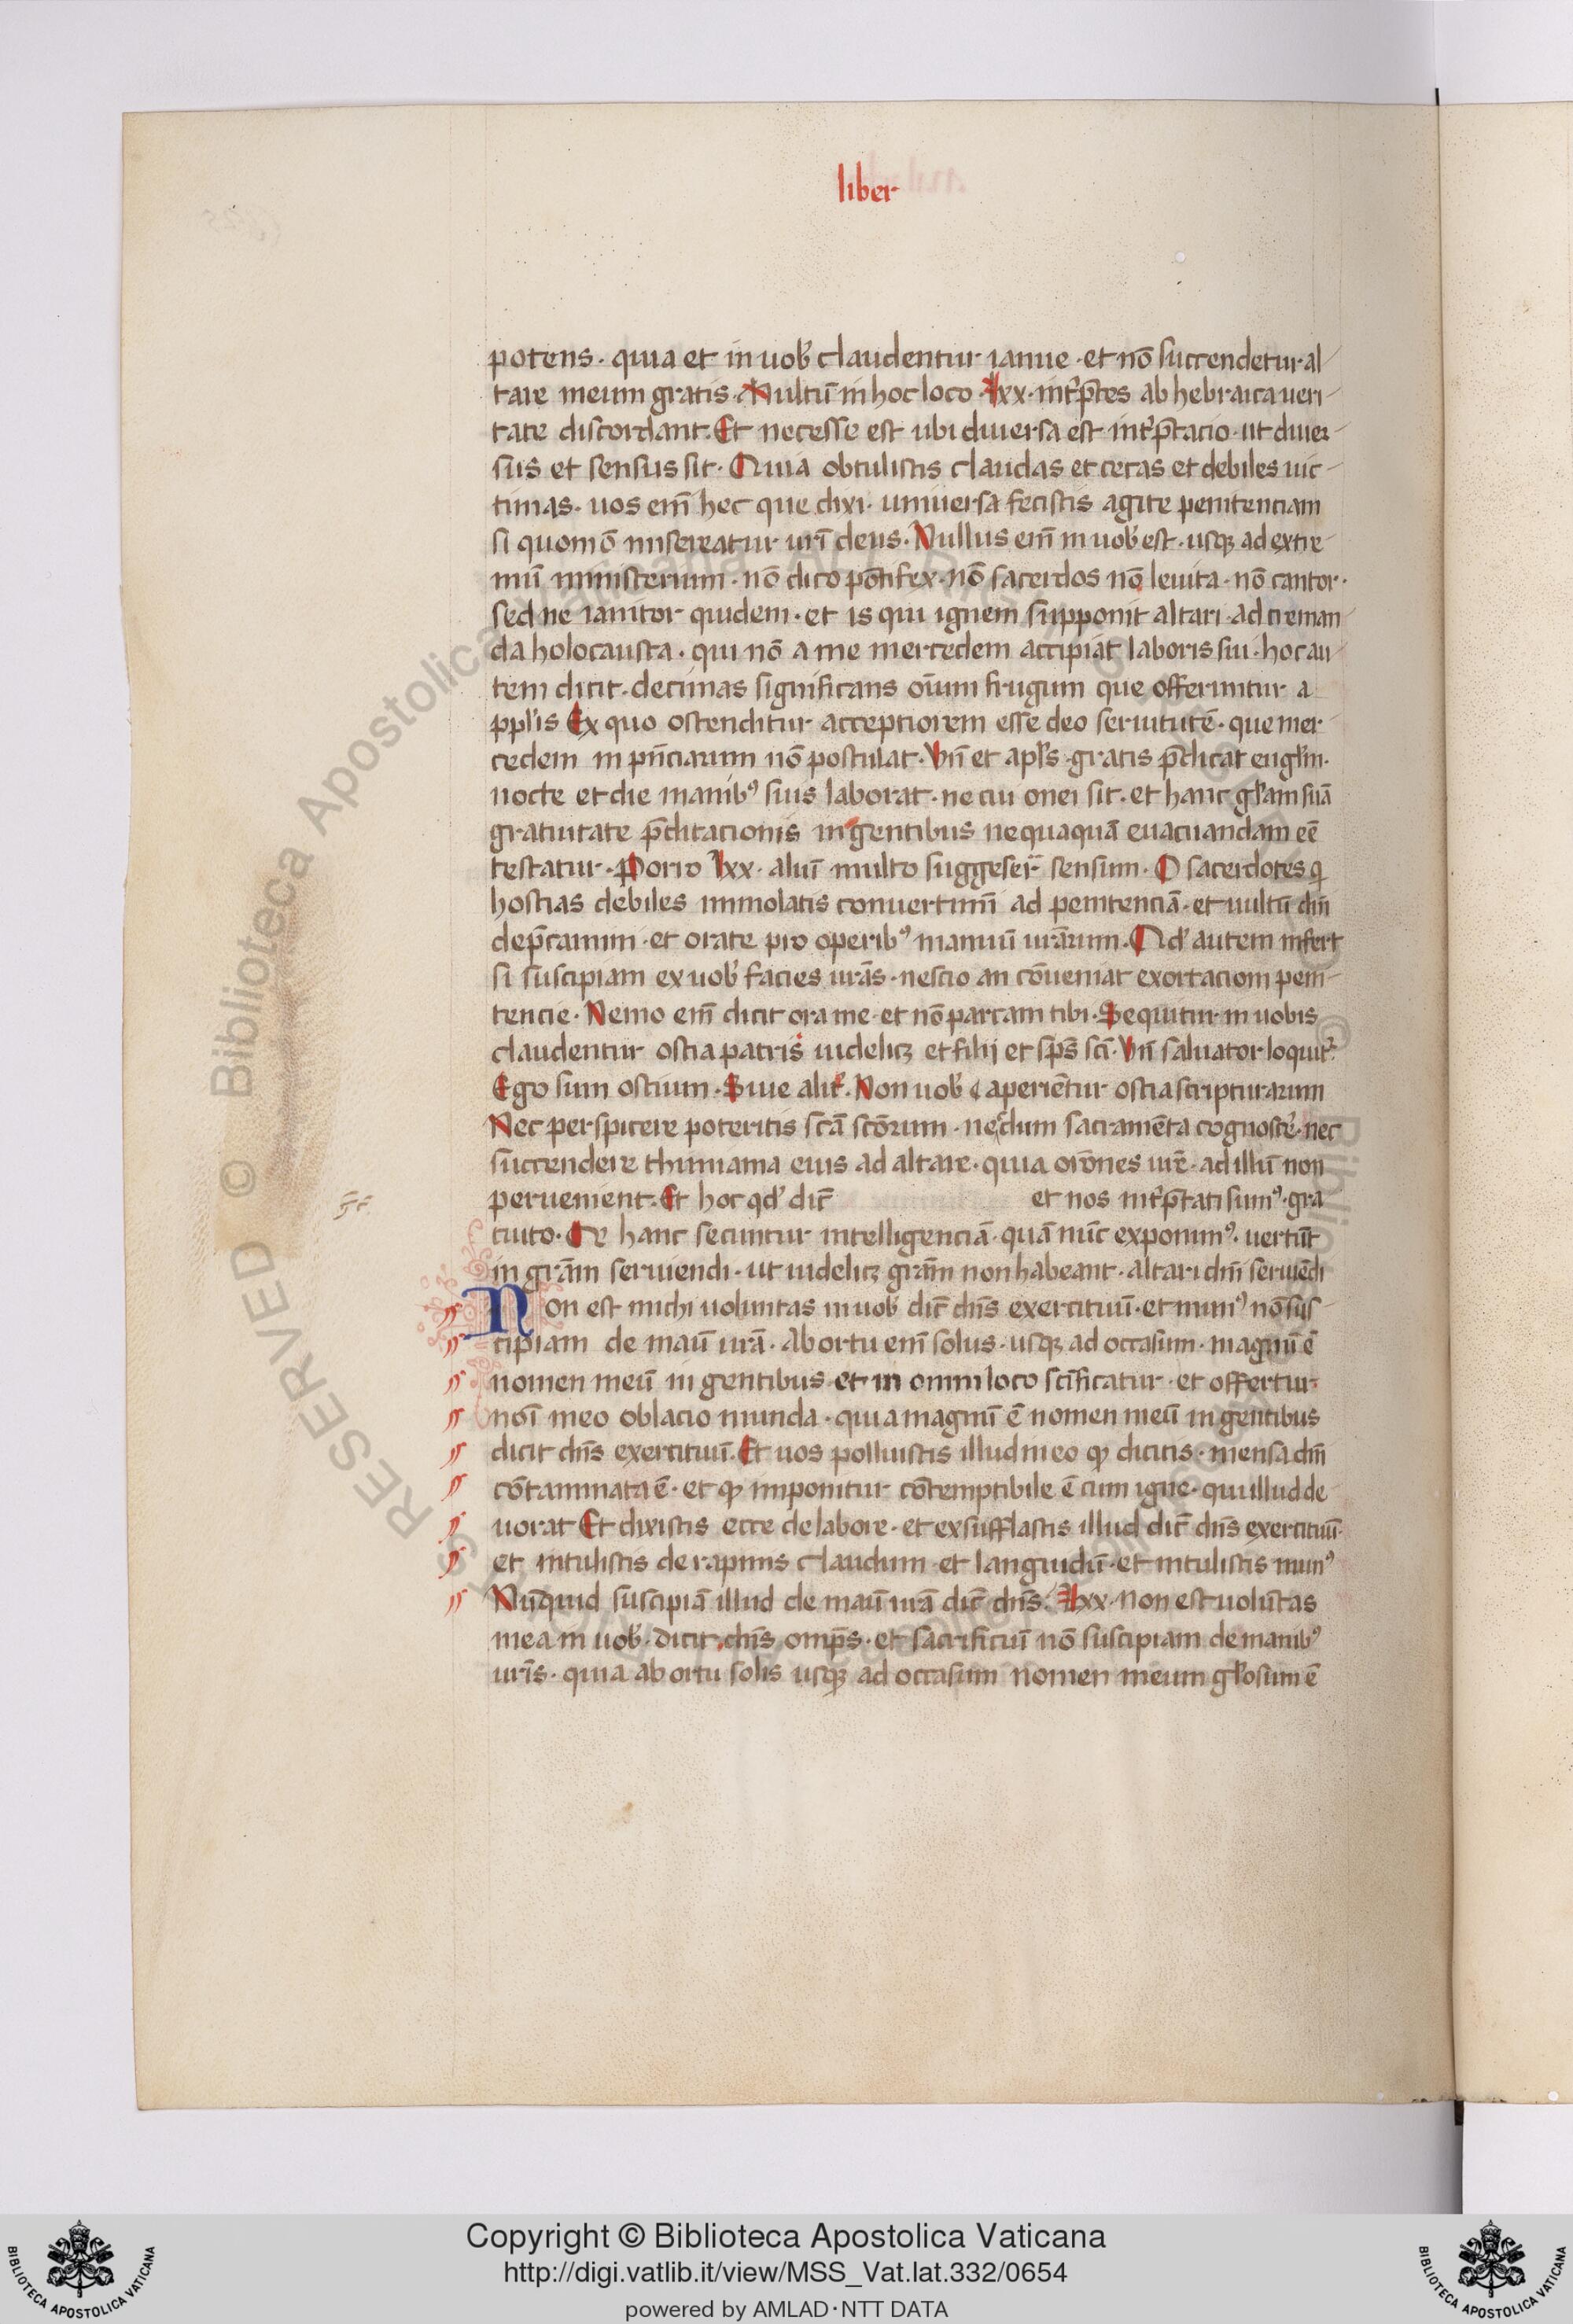 liber
potens · quia et in uob̕ claudentur ianue · et nō succendetur al
tare meum gratis · Multū in hoc loco · lxx · int̕p̄tes ab hebraica ueri
tate discordant. Et necesse est ubi diuersa est int̕p̄tacio · ut diuer
sus et sensus sit · Quia obtulistis claudas et cecas et debiles uic
timas · uos em̄ hec que dixi · uniuersa fecistis agite penitenciam
si quomō misereatur ur̄i deus. Nullus em̄ in uob̕ est · usqꝫ ad extre
mū ministerium · nō dico pōtifex · nō sacerdos nō leuita · nō cantor ·
sed ne ianitor quidem · et is qui ignem supponit altari · ad creman
da holocausta · qui nō a me mercedem accipiat laboris sui · hoc au
tem dicit · decimas significans oīum frugum que offeruntur a
ppl̕is Ex quo ostenditur acceptiorem esse deo seruitutē · que mer
cedem in pn̄ciarum nō postulat · Vn̄ et apl̕s · gratis p̄dicat eugl̕m ·
nocte et die manibꝰ suis laborat · ne cui oneri sit · et hanc gl̕am suā
gratuitate p̄dicacionis in gentibus nequaquā euacuandam eē
testatur · Porro lxx · aliū multo suggeser̄ sensum · O sacerdotes q̇
hostias debiles immolatis conuertimī ad penitenciā · et uultū dn̄i
dep̄camini · et orate pro operibꝰ manuū ur̄arum. Qd̕ autem infert
si suscipiam ex uob̕ facies ur̄as · nescio an cōueniat exortacioni peni
tencie · Nemo em̄ dicit ora me · et nō parcam tibi · Sequitur in uobis
claudentur ostia patris uidelicꝫ et filij et sp̄s sc̄i · Vn̄ saluator loquit̕
Ego sum ostium · Siue alit̕. Non uob̕ aperiētur ostia scripturarum
Nec perspicere poteritis sc̄a sc̄orum · necdum sacramēta cognosce̕ · nec
succendere thimiama eius ad altare · quia or̄ones ur̄e · ad illū non
peruenient. Et hoc qd̕ dic̄ et nos int̕p̄tati sumꝰ · gra
tuito · Qe hanc secuntur intelligenciā · quā nūc exponimꝰ · uertūt
in gr̄am seruiendi · ut uidelicꝫ gr̄am non habeant · altari dn̄i seruiēdi
Non est michi uoluntas in uob̕ dic̄ dn̄s exercituū · et munꝰ nō sus
cipiam de manū ur̄a · Ab ortu em̄ solus · usqꝫ ad occasum · magnū ē
nomen meū in gentibus et in omni loco sc̄ificatur · et offertur
noī meo oblacio munda · quia magnū ē nomen meū in gentibus
dicit dn̄s exercituū. Et uos polluistis illud in eo qꝫ dicitis · mensa dn̄i
cōtaminata ē · et qꝫ imponitur cōtemptibile ē cum igne · qui illud de
uorat Et dixistis ecce de labore · et exsufflastis illud dic̄ dn̄s exercituū ·
et intulistis de rapinis claudum et languidū · et intulistis munꝰ
Nūquid suscipiā illud de manū ur̄a dic̄ dn̄s. lxx · non est uolūtas
mea in uob̕ · dicit dn̄s omp̄s · et sacrificiū nō suscipiam de manibꝰ
ur̄is · quia ab ortu solis usqꝫ ad occasum nomen meum gl̕osum ē
RESERVED © Biblioteca Apostolica
BIBLIOTECA APOSTOLICA VATICANA
Copyright © Biblioteca Apostolica Vaticana
http://digi.vatlib.it/view/MSS_Vat.lat.332/0654
powered by AMLAD·NTT DATA
BIBLIOTECA APOSTOLICA VATICANA